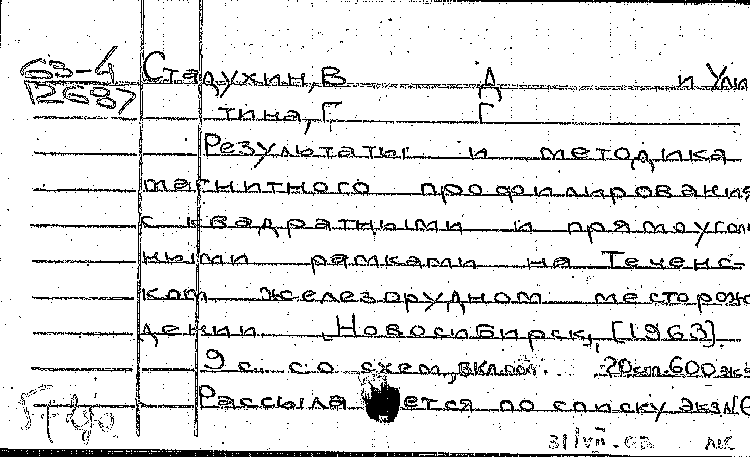 63-4 Стадухин, В Д и Ули
12687 тина, Г Г
Результаты и методика
магнитного профилирования
с квадратными и прямоуголь
ными рамками на Теченс-
ком железорудном месторож
дении. Новосибирск, [1963]
9 с. со схем, вкл. 20см. 600 экз
Рассылается по списку Экз №
31/VII.63